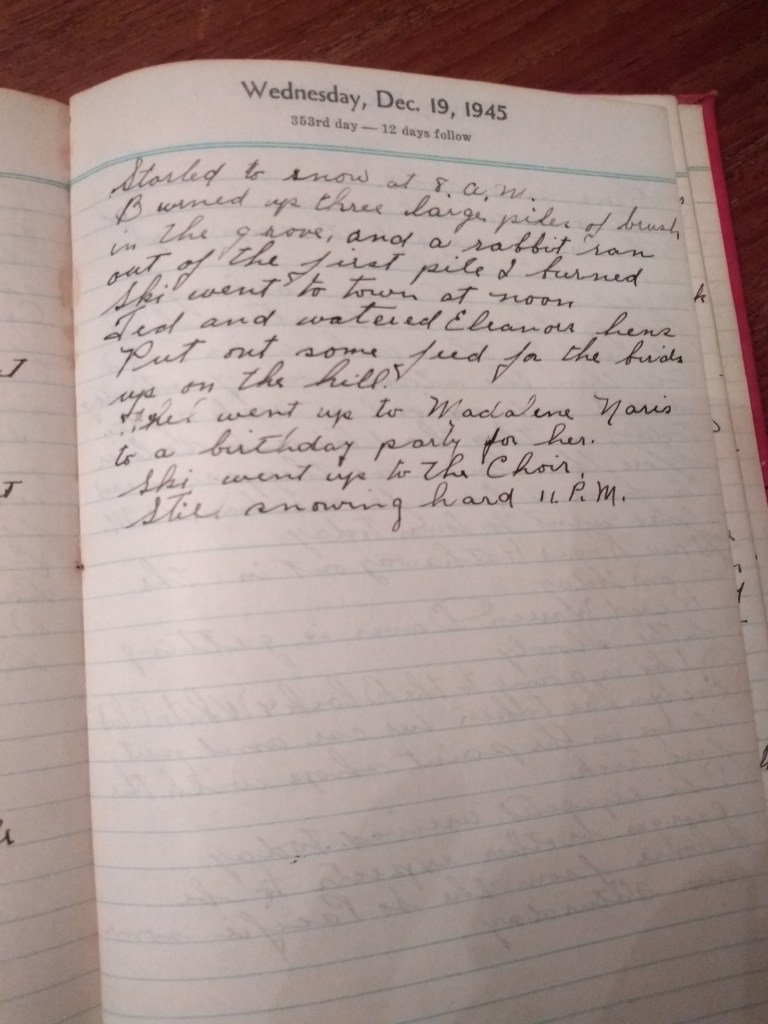 Wednesday, Dec. 19, 1945
353rd day — 12 days follow
Started to snow at 8. a.m.
Burned up three large piles of brush
in the grove, and a rabbit ran
out of the first pile I burned
Ski went to town at noon
Fed and watered Eleanors hens
Put out some feed for the birds
up on the hill.
went up to Madalene Naris
to a birthday party for her.
Ski went up to the Choir.
Still snowing hard 11 P.M.